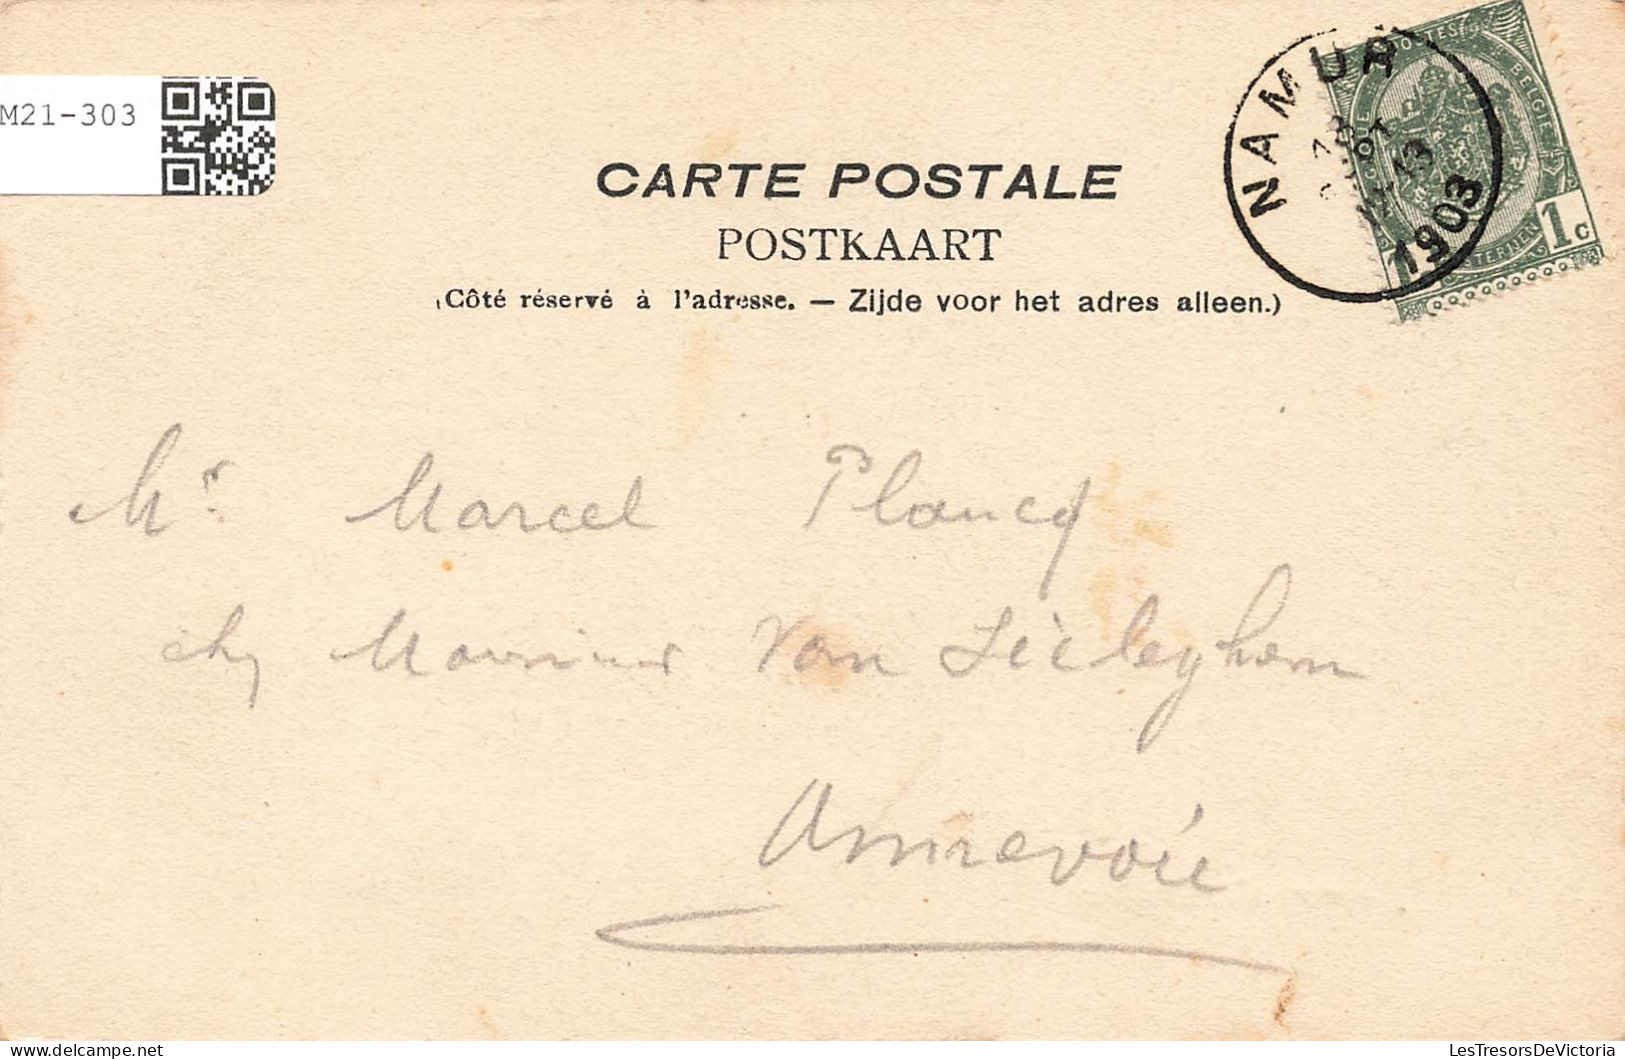 M21-303
NAMUR
1903
POSTES BELGIE
1c
CARTE POSTALE
POSTKAART
(Côté réservé à l'adresse. — Zijde voor het adres alleen.)
Mr. Marcel Plancq
chez Monsieur Van
Annevoie
Delcampe.net
LesTresorsDeVictoria